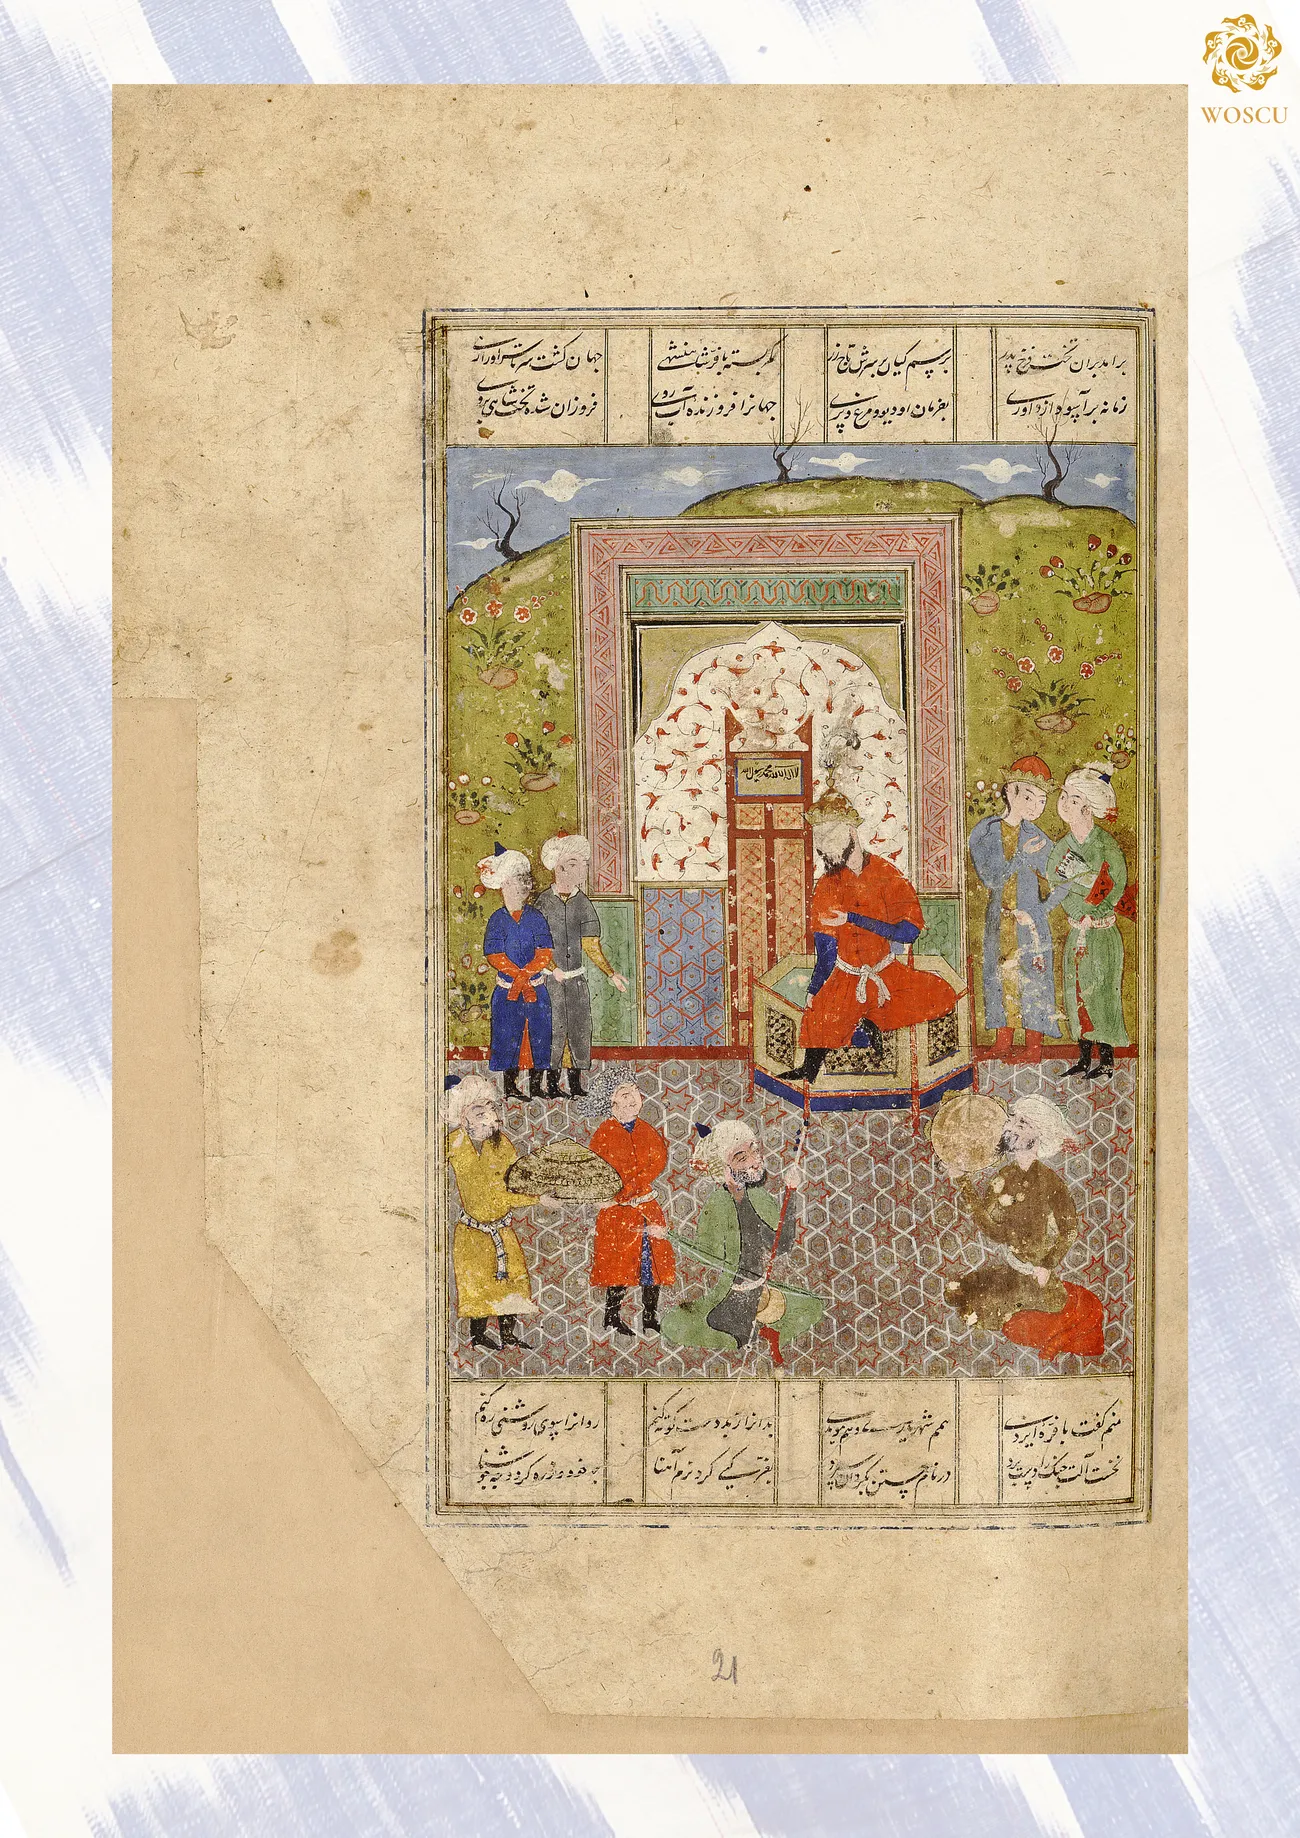 WOSCU
برامد بران تخت فرخ پدر برسم کیان بر سرش تاج زر کمر بسته با فر شاهنشهی جهان کشت سرتاسر اورا رهی
زمانه بر آسود از داوری بفرمان او دیو و مرغ و پری جهانرا فروزنده آب روی فروزان شده تخت شاهی بدوی
لا اله الا الله محمد رسول الله
منم کفت با فره ایزدی همم شهریاری و هم موبدی بدانرا ز بد دست کوته کنم روانرا سوی روشنی ره کنم
نخست آلت جنک را در نام جستن بکردان سپرد بفر کیی کرد نرم آهنا چو خود و زره کرد و چو جوشنا
21